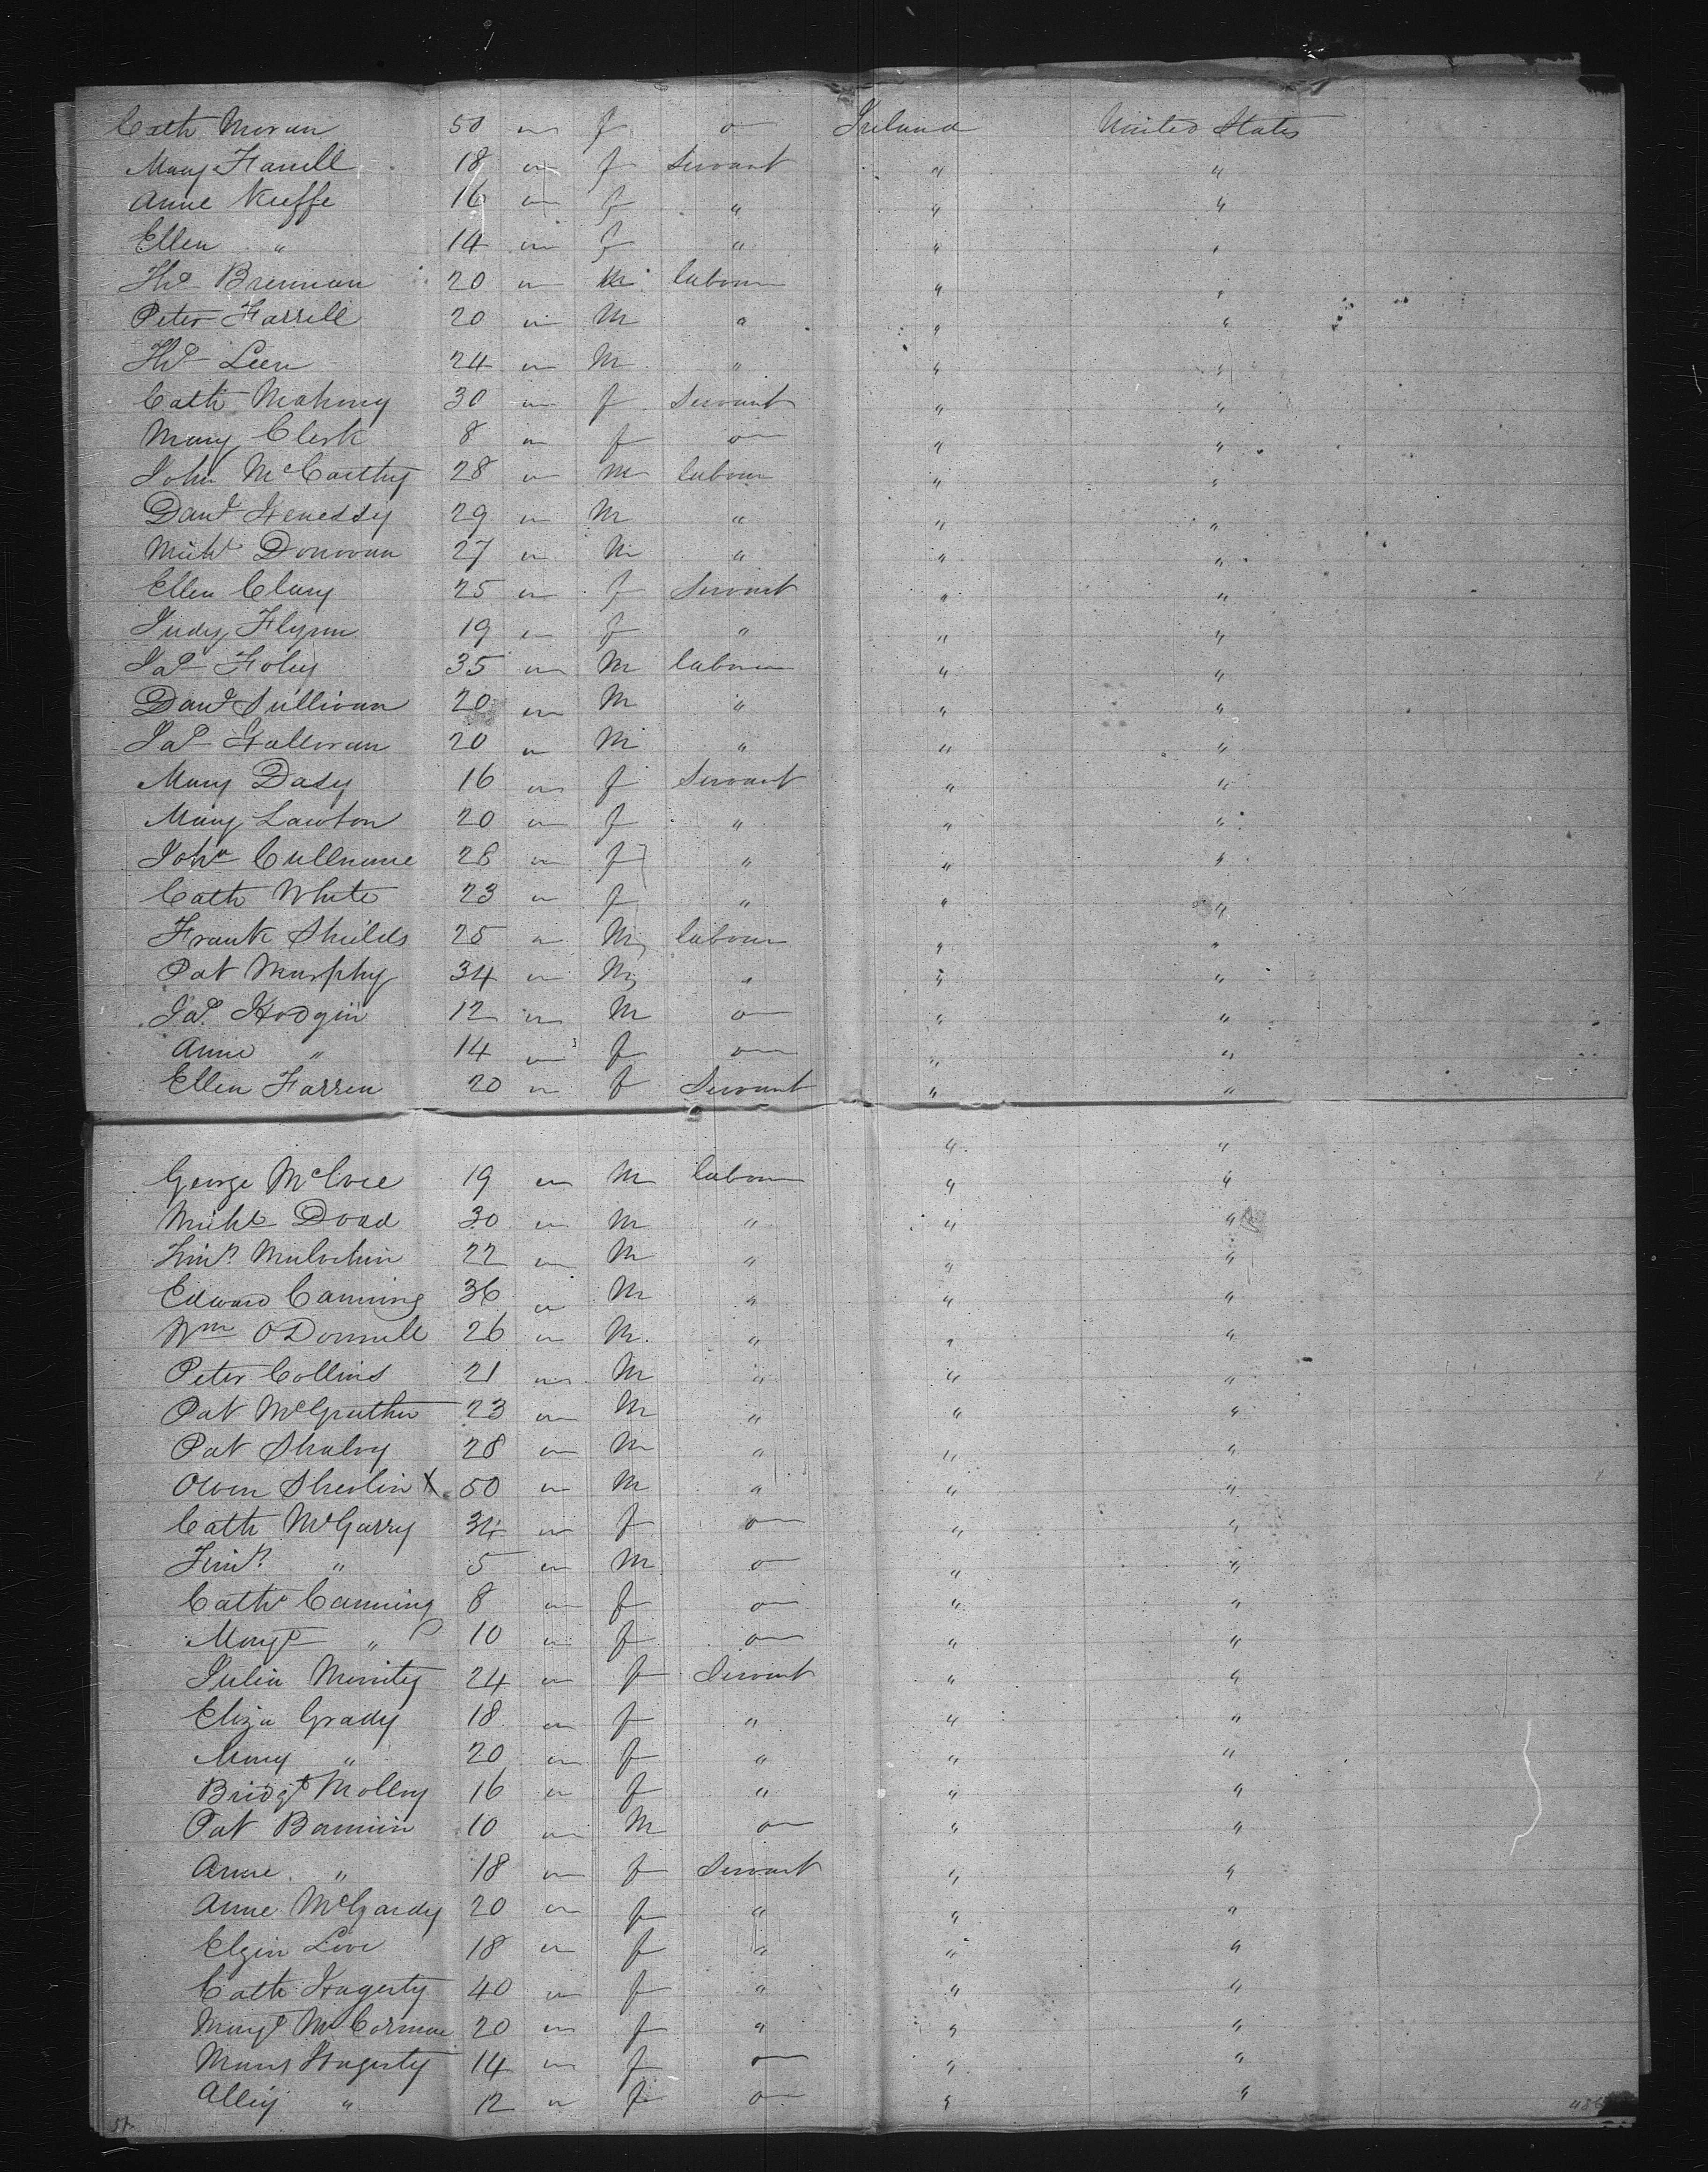 Cath Moran 50 " f o Ireland United States
Mary Farrell 18 " f Servant " "
Anne Keeffe 16 " f " " "
Ellen " 14 " f " " "
Thos Brennan 20 " M labour " "
Peter Farrell 20 " M " " "
Thos Leen 24 " M " " "
Cath Mahony 30 " f Servant " "
Mary Clerk 8 " f o " "
John McCarthy 28 " M labour " "
Danl Henessy 29 " M " " "
Michl Donovan 27 " M " " "
Ellen Clary 25 " f Servant " "
Judy Flynn 19 " f " " "
Jas Foley 35 " M labour " "
Danl Sullivan 20 " M " " "
Jas Halloran 20 " M " " "
Mary Dady 16 " f Servant " "
Mary Lawton 20 " f " " "
Joha Cullnane 28 " f " " "
Cath White 23 " f " " "
Frank Shields 25 " M labour " "
Pat Murphy 34 " M " " "
Jas. Hodgin 12 " M o " "
Anne " 14 " f o " "
Ellen Farren 20 " f Servant " "
" "
George McEvoe 19 " M labour " "
Michl Doad 30 " M " " "
22 " M " " "
Edward Canning 36 " M " " "
Wm O'Donnell 26 " M " " "
Peter Collins 21 " M " " "
Pat 23 " M " " "
Pat Shalvy 28 " M " " "
Owen Shevlin X 50 " M " " "
Cath McGarry 34 " f o " "
" 5 " M o " "
Cath Canning 8 " f o " "
Margt " 10 " f o " "
Julia 24 " f Servant " "
Eliza Grady 18 " f " " "
Mary " 20 " f " " "
Bridgt Molloy 16 " f " " "
Pat Bannin 10 " M o " "
Anne " 18 " f Servant " "
Anne 20 " f " " "
Elgin Love 18 " f " " "
Cath Hagerty 40 " f " " "
Margt McCormac 20 " f " " "
Mary Hagerty 14 " f o " "
Alley " 12 " f o " "
51